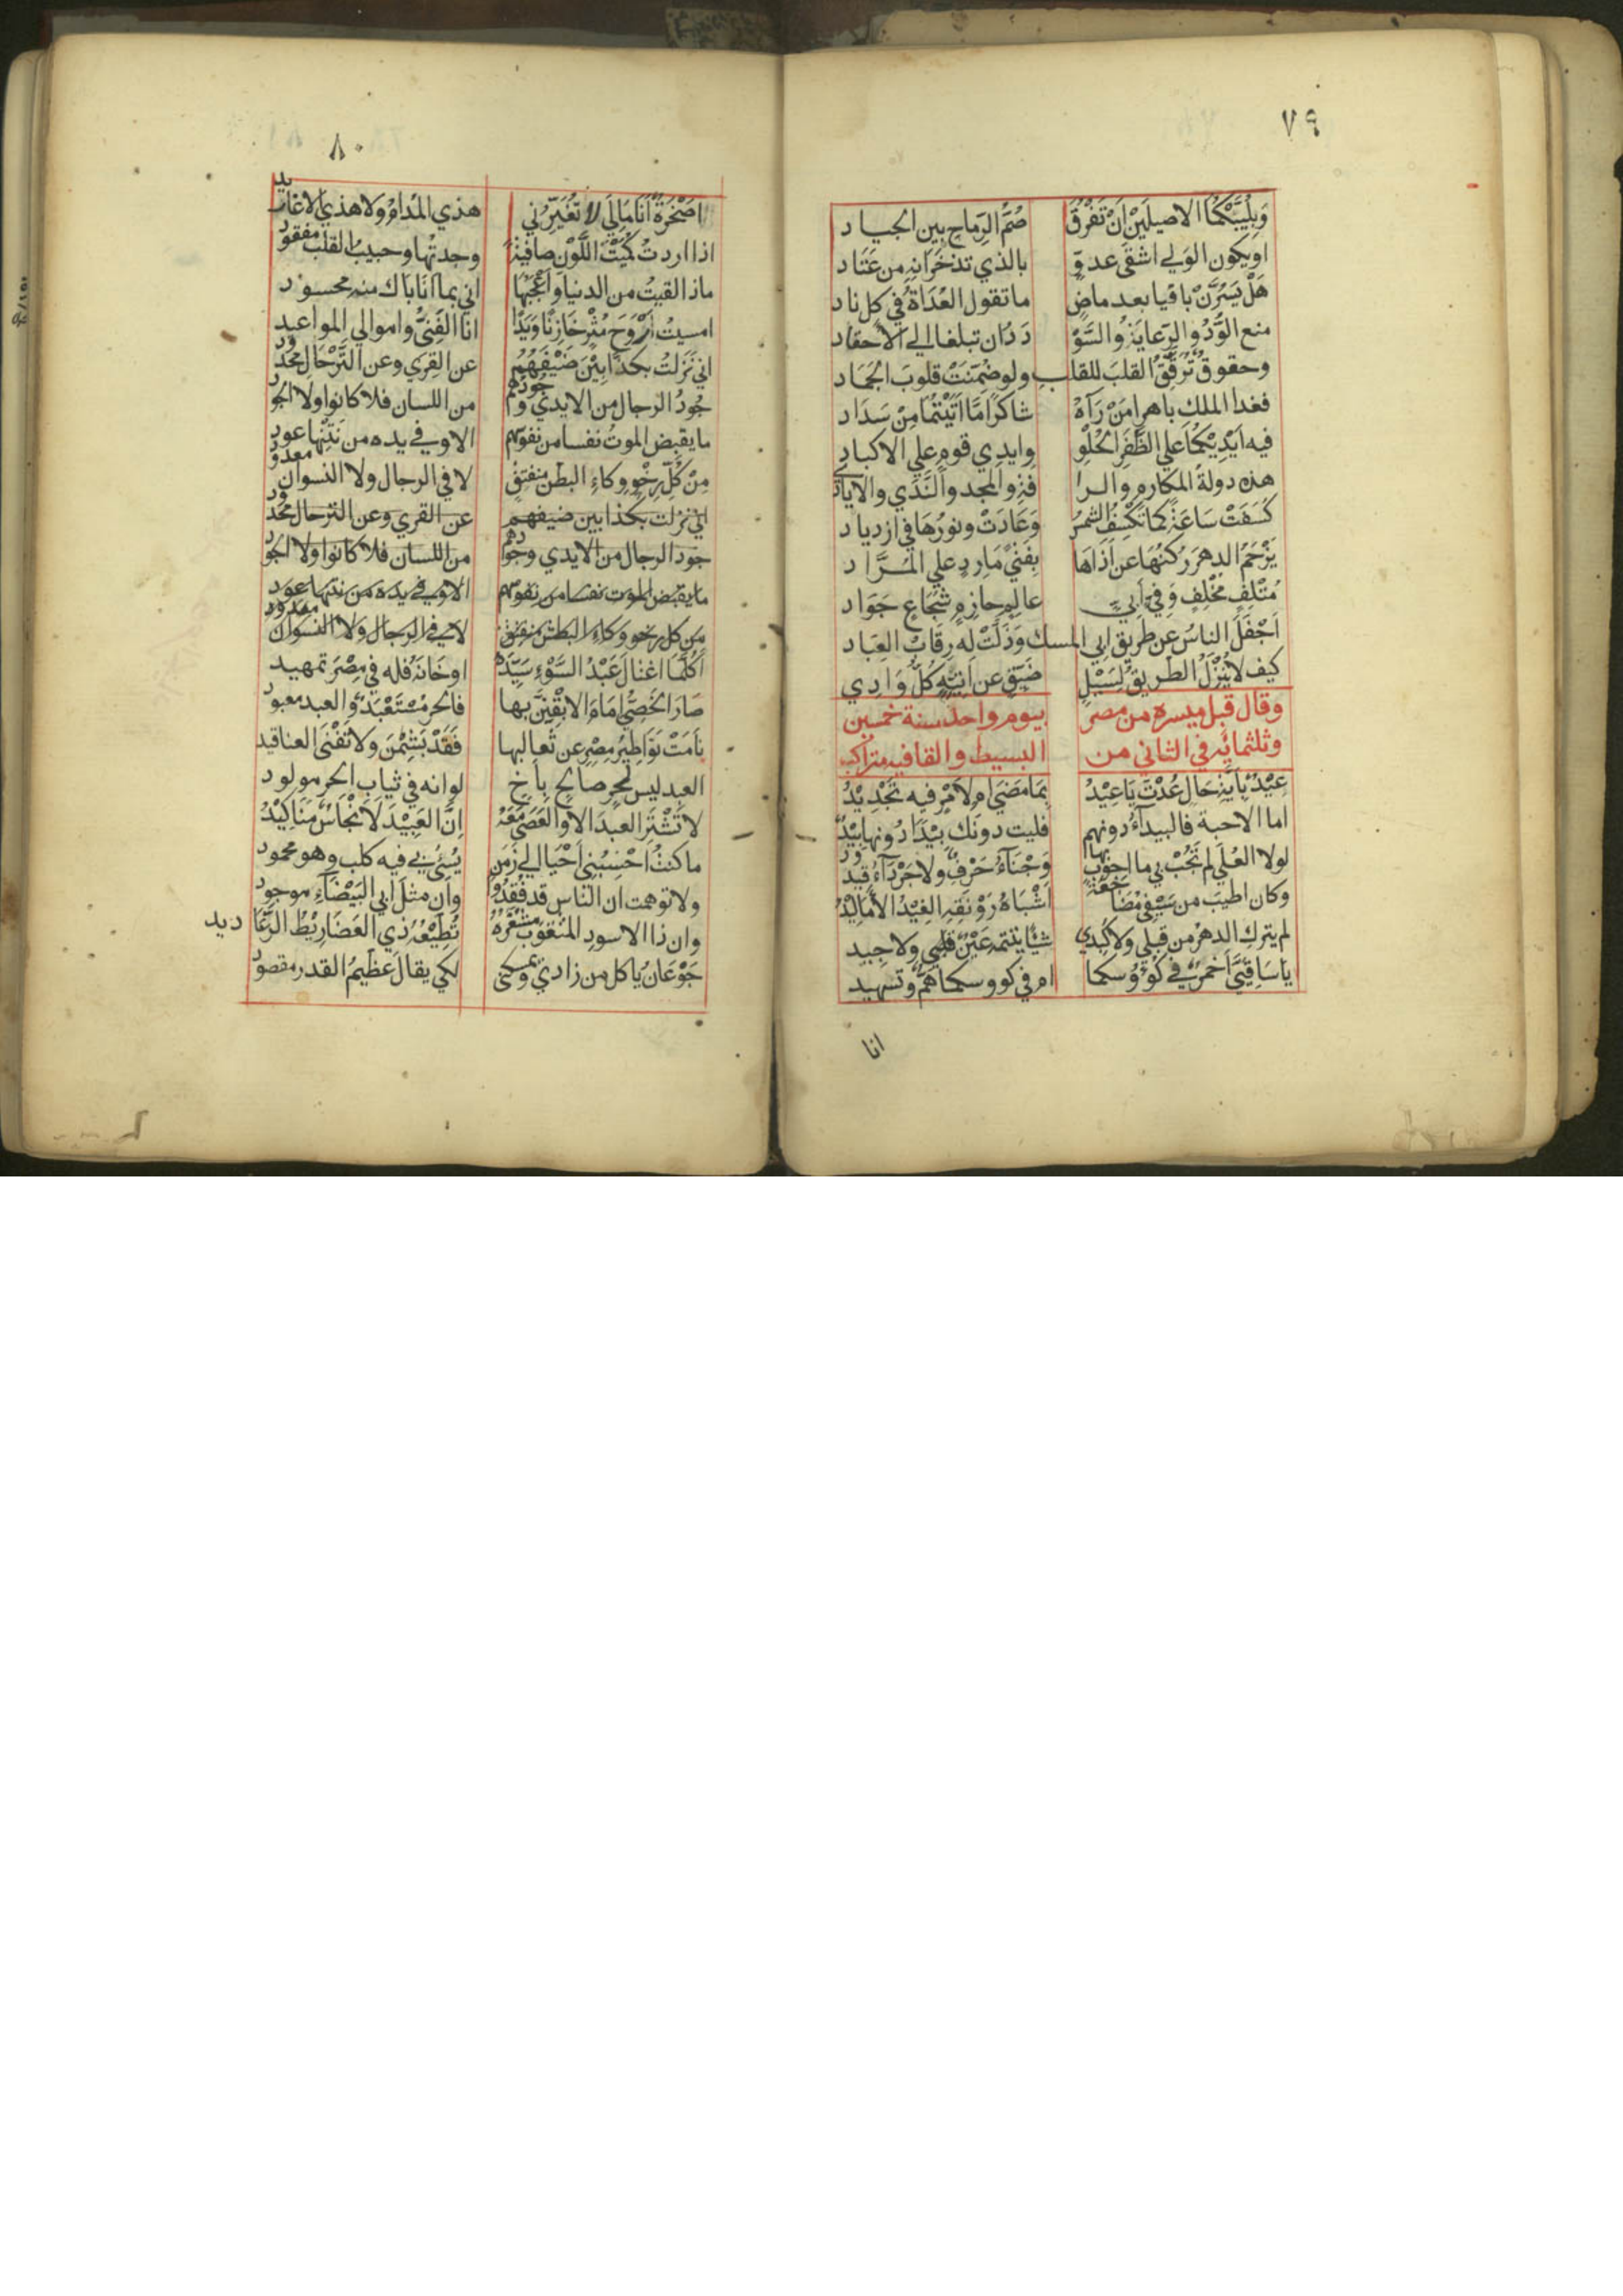 ٧٩
وَبِلُبَّيْكُمَا الاصيلَيْنِ اَنْ تَفْرُقَ صُمُّ الرِّمَاحِ بين الجياد
اويكون الوَلي اشقَى عدوٍّ بالذي تذخَرَانِهِ من عَتَاد
هَلْ يَسُرَّنْ باقيا بعد ماضٍ ما تقول العُدَاةُ في كل ناد
منع الوُدُّ والرّعايَةُ والسُّؤْ دَدُ ان تبلغا الي الاحقاد
وحقوق تُرَقِّقُ القلبَ للقلب ولو ضُمِّنَتْ قلوبَ الجَمَاد
فغدا الملك باهرا مَنْ رَآهُ شاكرًا مَا اَتَيْتُمَا مِنْ سَدَاد
فيه اَيْدِيْكُمَا عَلي الظَّفَرِ الحُلْوِ وايدي قوم علي الاكباد
هذه دولةُ المكارم والرا فةِ والمجد والنَّدَي والاياد
كَسَفَتْ سَاعَةً كما تَكْسِفُ الشمسُ وَعَادَتْ ونورُهَا في ازدياد
يَزْحَمُ الدهرَ رُكنُهَا عن اَذَاهَا بِفَتًي مَارِدٍ علي المُرَّاد
مُتْلِفٍ مُخْلِفٍ وَفِيٍّ اَبيٍّ عالِمٍ حازمٍ شُجَاعٍ جَوَاد
اَجْفَلَ الناسُ عن طَرِيق ابي المسك وَذَلَّتْ لَه رِقَابُ العِبَاد
كيف لا يُتْرَكُ الطريقُ لِسَيْلٍ ضَيِّقٍ عن اَتِيِّهِ كُلُّ وَادِي
وقال قبل مسيره من مصر بيوم واحد سنة خمسين
وثلثمائه في الثاني من البسيط والقافيه متراكب
عِيْدٌ بِاَيَّةِ حَال عُدْتَ يَا عِيْدُ بِمَا مَضَي ام لاَمْرٍ فيه تَجْدِيْدُ
اما الاحبة فالبيدآءُ دونهم فليت دونَك بِيْدًا دُونها بِيْدُ
لولا العُلَي لم تَجُبْ بي ما اجوب بها وَجْنَآءُ حَرْفٌ ولا جَرْدَآءُ قيدود
وكان اطيبَ من سَيْفِيْ مُضَاجَعَةً اَشْبَاهُ رَوْنَقِهِ الغِيْدُ الاَمَالِيْدُ
لم يترك الدهرُ من قلبي ولا كَبِدي شيئا تتيمه عَيْنٌ ولا جيد
يا سَاقِيَيَّ اَخَمْرٌ في كُؤُوسكما ام في كووسكما هَمٌّ وتسهيد
انا
٨٠
اصَخْرَةٌ اَنَا مَالِي لا تُغَيِّرُني هذي المُدَامُ ولا هذي الاغاريد
اذا اردتُ كُمَيْتَ اللَّوْن صافيةً وجدتُها وحبيبُ القلب مفقود
ماذا لقيتُ من الدنيا وَاَعْجَبُهَا اني بما انَا بَاك منه محسود
امسيتُ اَرْوَحَ مُثْرٍ خَازِنًا وَيَدًا انا الغَنِيُّ واموالي المواعيد
اني نَزَلتُ بكذابِيْنَ ضَيْفُهُمُ عن القِرَي وعن التَّرْحَالِ محدود
جُودُ الرجال من الايدي وجُودُهُم من اللسان فلا كانوا ولا الجود
ما يقبض الموتُ نفسا من نفوسهم الا وفي يده من نَتْنِها عود
مِنْ كُلِّ رِخْوِ وِكاءِ البطن منفتقٍ لا في الرجال ولا النسوان معدود
اني نزلت بكذابين ضيفهم عن القري وعن الترحال محدود
جود الرجال من الايدي وجودهم من اللسان فلا كانوا ولا الجود
ما يقبض الموت نفسا من نفوسهم الا وفي يده من نتنها عود
من كل رخو وكاء البطن منفتق لا في الرجال ولا النسوان معدود
اَكُلَّمَا اغتالَ عَبْدُ السَّوْءِ سَيِّدَهُ اوخَانَهُ فله في مِصْرَ تمهيد
صَارَ الخَصِيُّ اِمَامَ الابقِيْنَ بها فالحر مُسْتَعْبَدٌ والعبد معبود
نَامَتْ نَوَاطِيْرُ مِصْرٍ عن ثعالبها فَقَدْ بَشِمْنَ ولا تَفْنَي العناقيد
العبد ليس لحر صالح باخ لو انه في ثياب الحر مولود
لا تَشْتَرِ العبدَ الا والعَصَي مَعَهُ اِنَّ العَبِيْدَ لَاَنْجَاسٌ مَنَاكِيْدُ
ما كنتُ اَحْسِبُنِي اَحْيَا الي زَمَنٍ يُسِيْئُ بي فيه كلب وهو محمود
ولا توهمت ان الناس قد فُقِدُوْا وان مثلَ ابي البَيْضَآءِ موجود
وان ذا الاسودِ المثقوبَ مشفَرُهُ تُطِيْعُهُ ذي العَضَارِيْطُ الرَّعَاديد
جَوْعَانُ ياكل من زادي ويمسكني لكي يقالَ عظيمُ القدر مقصود